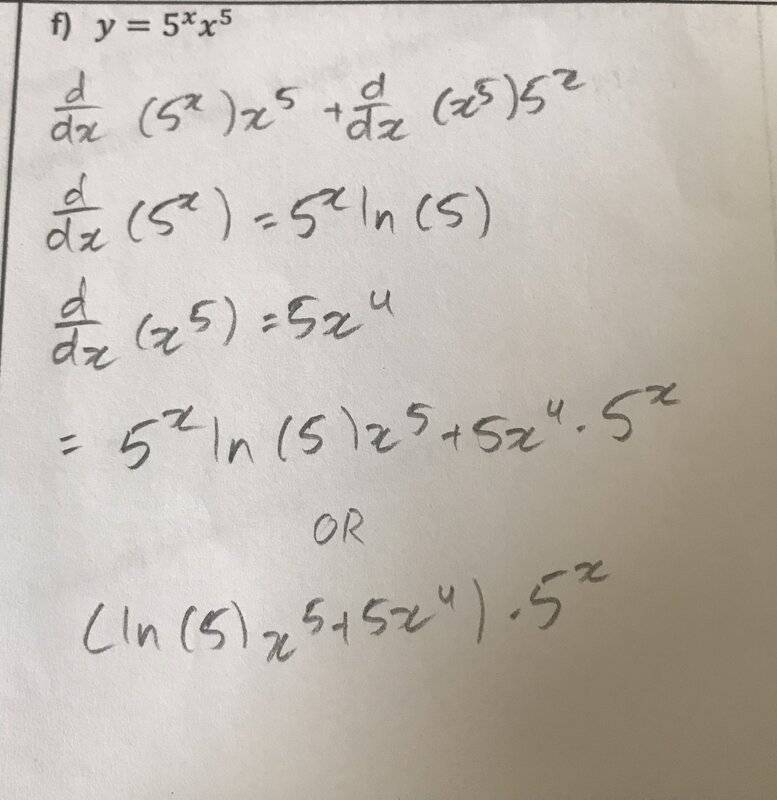 f) y = 5ˣx⁵
d/dx (5ˣ)x⁵ + d/dx (x⁵)5ˣ
d/dx (5ˣ) = 5ˣ ln (5)
d/dx (x⁵) = 5x⁴
= 5ˣ ln (5)x⁵ + 5x⁴ · 5ˣ
OR
(ln (5)x⁵ + 5x⁴) · 5ˣ